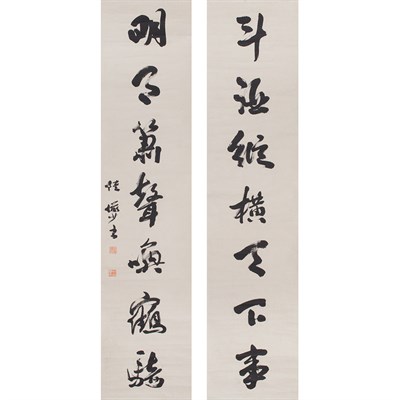 斗酒縱橫天下事
明月簫聲喚鶴騎
陸儼少書